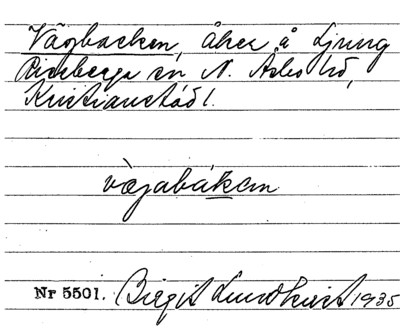 Vägbacken, åker å Ljung
Riseberga sn N. Åsbo hd,
Kristianstads l.
vägabáken
Nr 5501. Birgit Lundkvist 1935